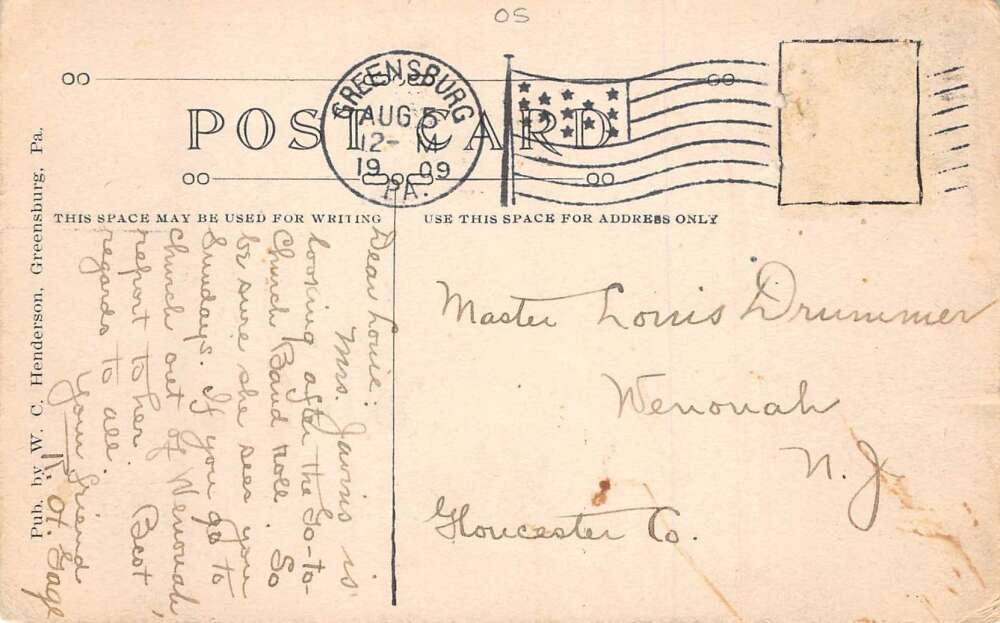 05
GREENSBURG
AUG 5
12- M
1909
PA.
POST CARD
THIS SPACE MAY BE USED FOR WRITING
USE THIS SPACE FOR ADDRESS ONLY
Pub. by W. C. Henderson, Greensburg, Pa.
Dear Louie:
Mrs. Jarvis is
looking after the Go-to-
Church Band roll. So
be sure she sees you
Sundays. If you go to
church out of Wenonah,
report to her. Best
regards to all.
Your friend
H. Gage
Master Louis Drummer
Wenonah
N. J.
Gloucester Co.